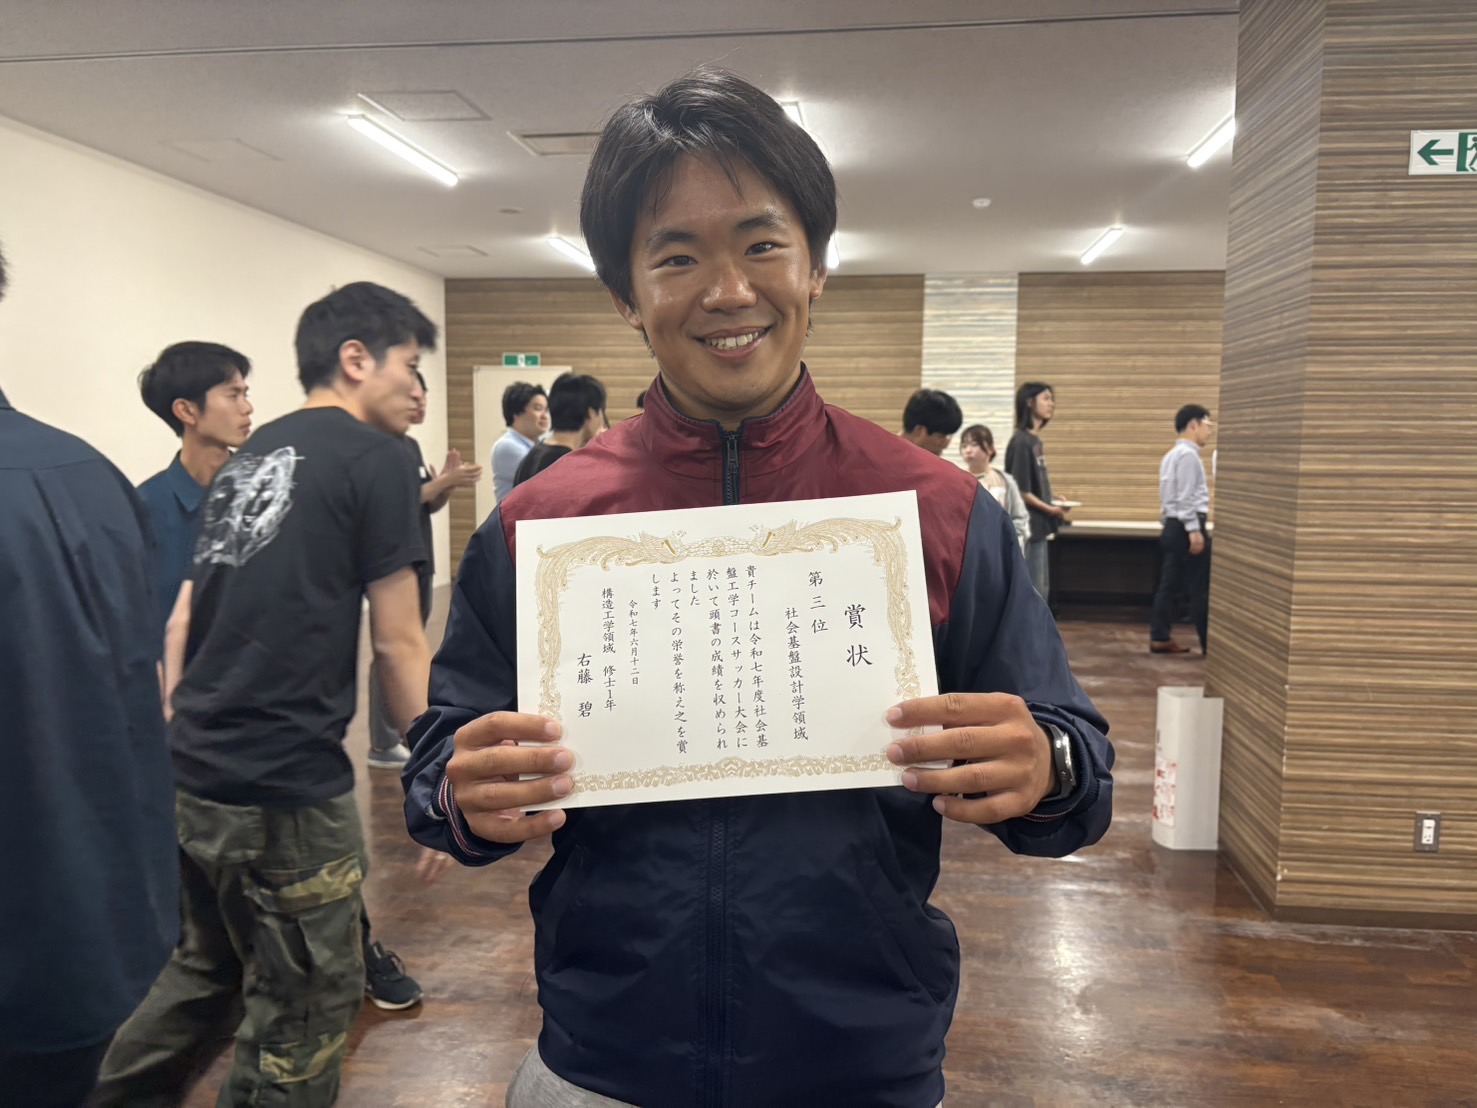 賞状
第三位
社会基盤設計学領域
貴チームは令和七年度社会基
盤工学コースサッカー大会に
於いて頭書の成績を収められ
ました
よってその栄誉を称え之を賞
します
令和七年六月十二日
構造工学領域 修士1年
右藤 碧